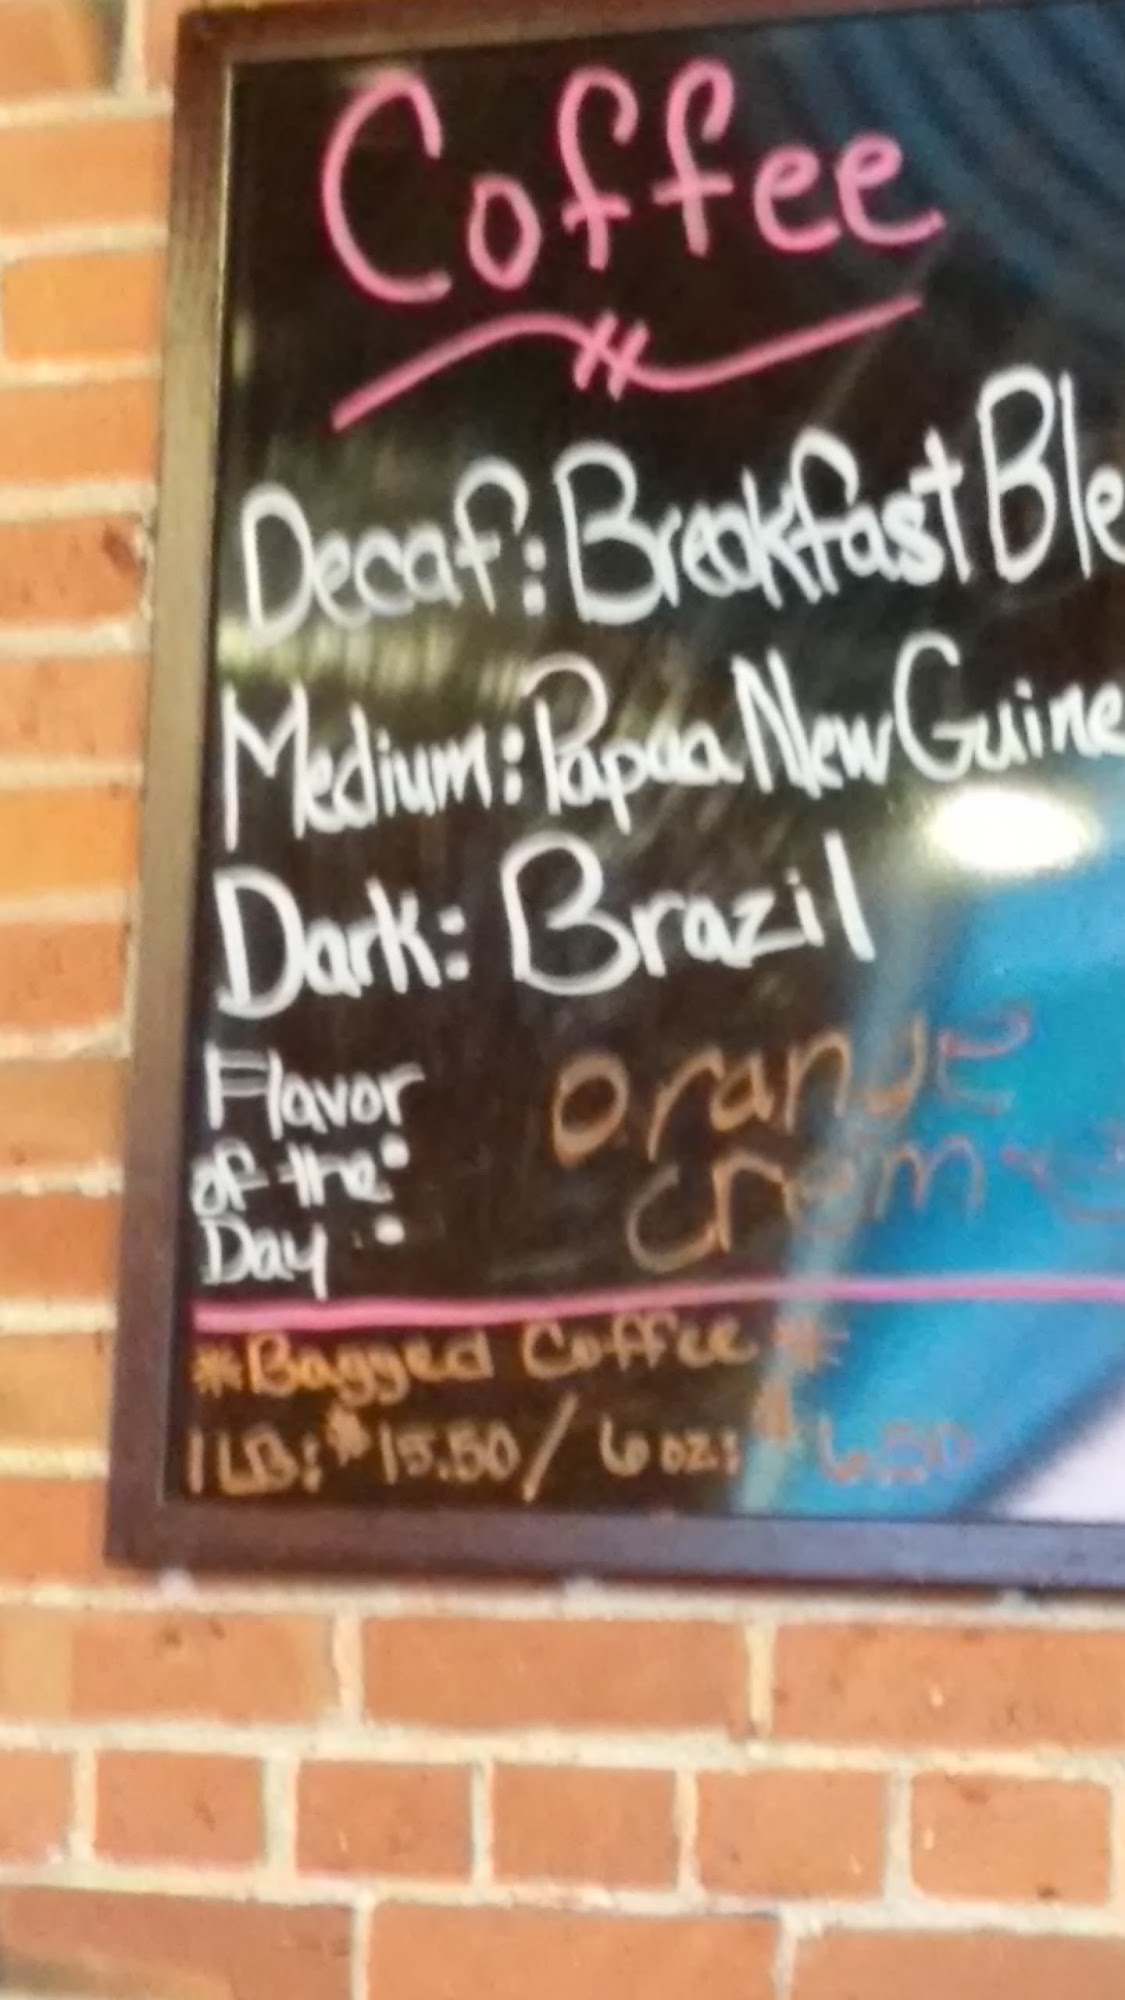 Coffee
Decaf: Breakfast Ble
Medium: Papua New Guine
Dark: Brazil
Flavor of the Day: Orange
*Bagged Coffee*
1 LB: $15.50 / 6 oz: $6.50